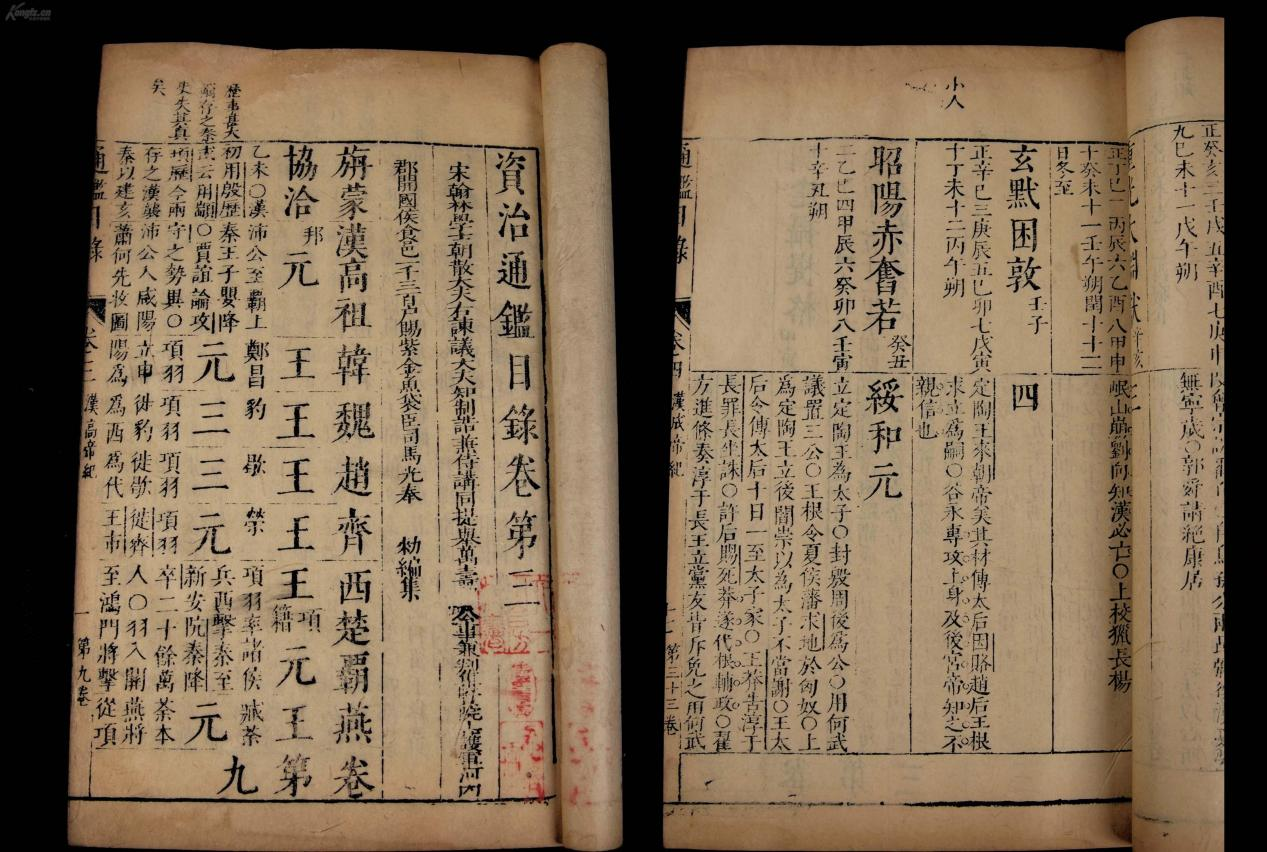 Kongfz.cn
歷事甚大
矣
資治通鑑目錄卷第三
宋翰林學士朝散大夫右諫議大夫知制誥兼侍講同提舉萬壽
郡開國侯食邑一千三百戶賜紫金魚袋臣司馬光奉 勑編集
旃蒙漢高祖韓魏趙齊西楚霸燕卷
協洽邦元王王王王項籍元王第九
乙未〇漢沛公至霸上鄭昌豹歇榮項羽率諸侯臧荼
初用殷歷秦王子嬰降元三三元兵西擊秦至元
新安阬秦降
項羽項羽項羽項羽卒二十餘萬荼本
存之漢襲沛公入咸陽立申徙豹徙歇徙齊人〇羽入關燕將
秦以建亥蕭何先收圖陽為為西為代王市至鴻門將擊從項
通鑑目錄
卷三
漢高帝紀
第九卷
小人
正癸亥三壬戌五辛酉七庚申
九己未十一戊午朔
無寧歲〇郭舜請絕康居
正丁巳一丙辰六乙酉八甲申岷山崩劉向知漢必亡〇上校獵長楊
十癸未十一壬午朔閏十十二
日冬至
玄黓困敦壬子 四
正辛巳三庚辰五己卯七戊寅定陶王來朝帝美其材傅太后因賂趙后王根
十丁未十二丙午朔求立為嗣〇谷永專攻上身及後宮帝知之不
親信也
昭陽赤奮若癸丑 綏和元
二乙巳四甲辰六癸卯八壬寅立定陶王為太子〇封殷周後為公〇用何武
十辛丑朔議置三公〇王根令夏侯藩求地於匈奴〇上
為定陶王立後閻崇以為太子不當謝〇王太
后令傅太后十日一至太子家〇王莽告淳于
長罪長坐誅〇許后賜死莽遂代根輔政〇翟
方進條奏淳于長王立黨友皆斥免之用何武
通鑑目錄
卷四
漢成帝紀
第三十三卷